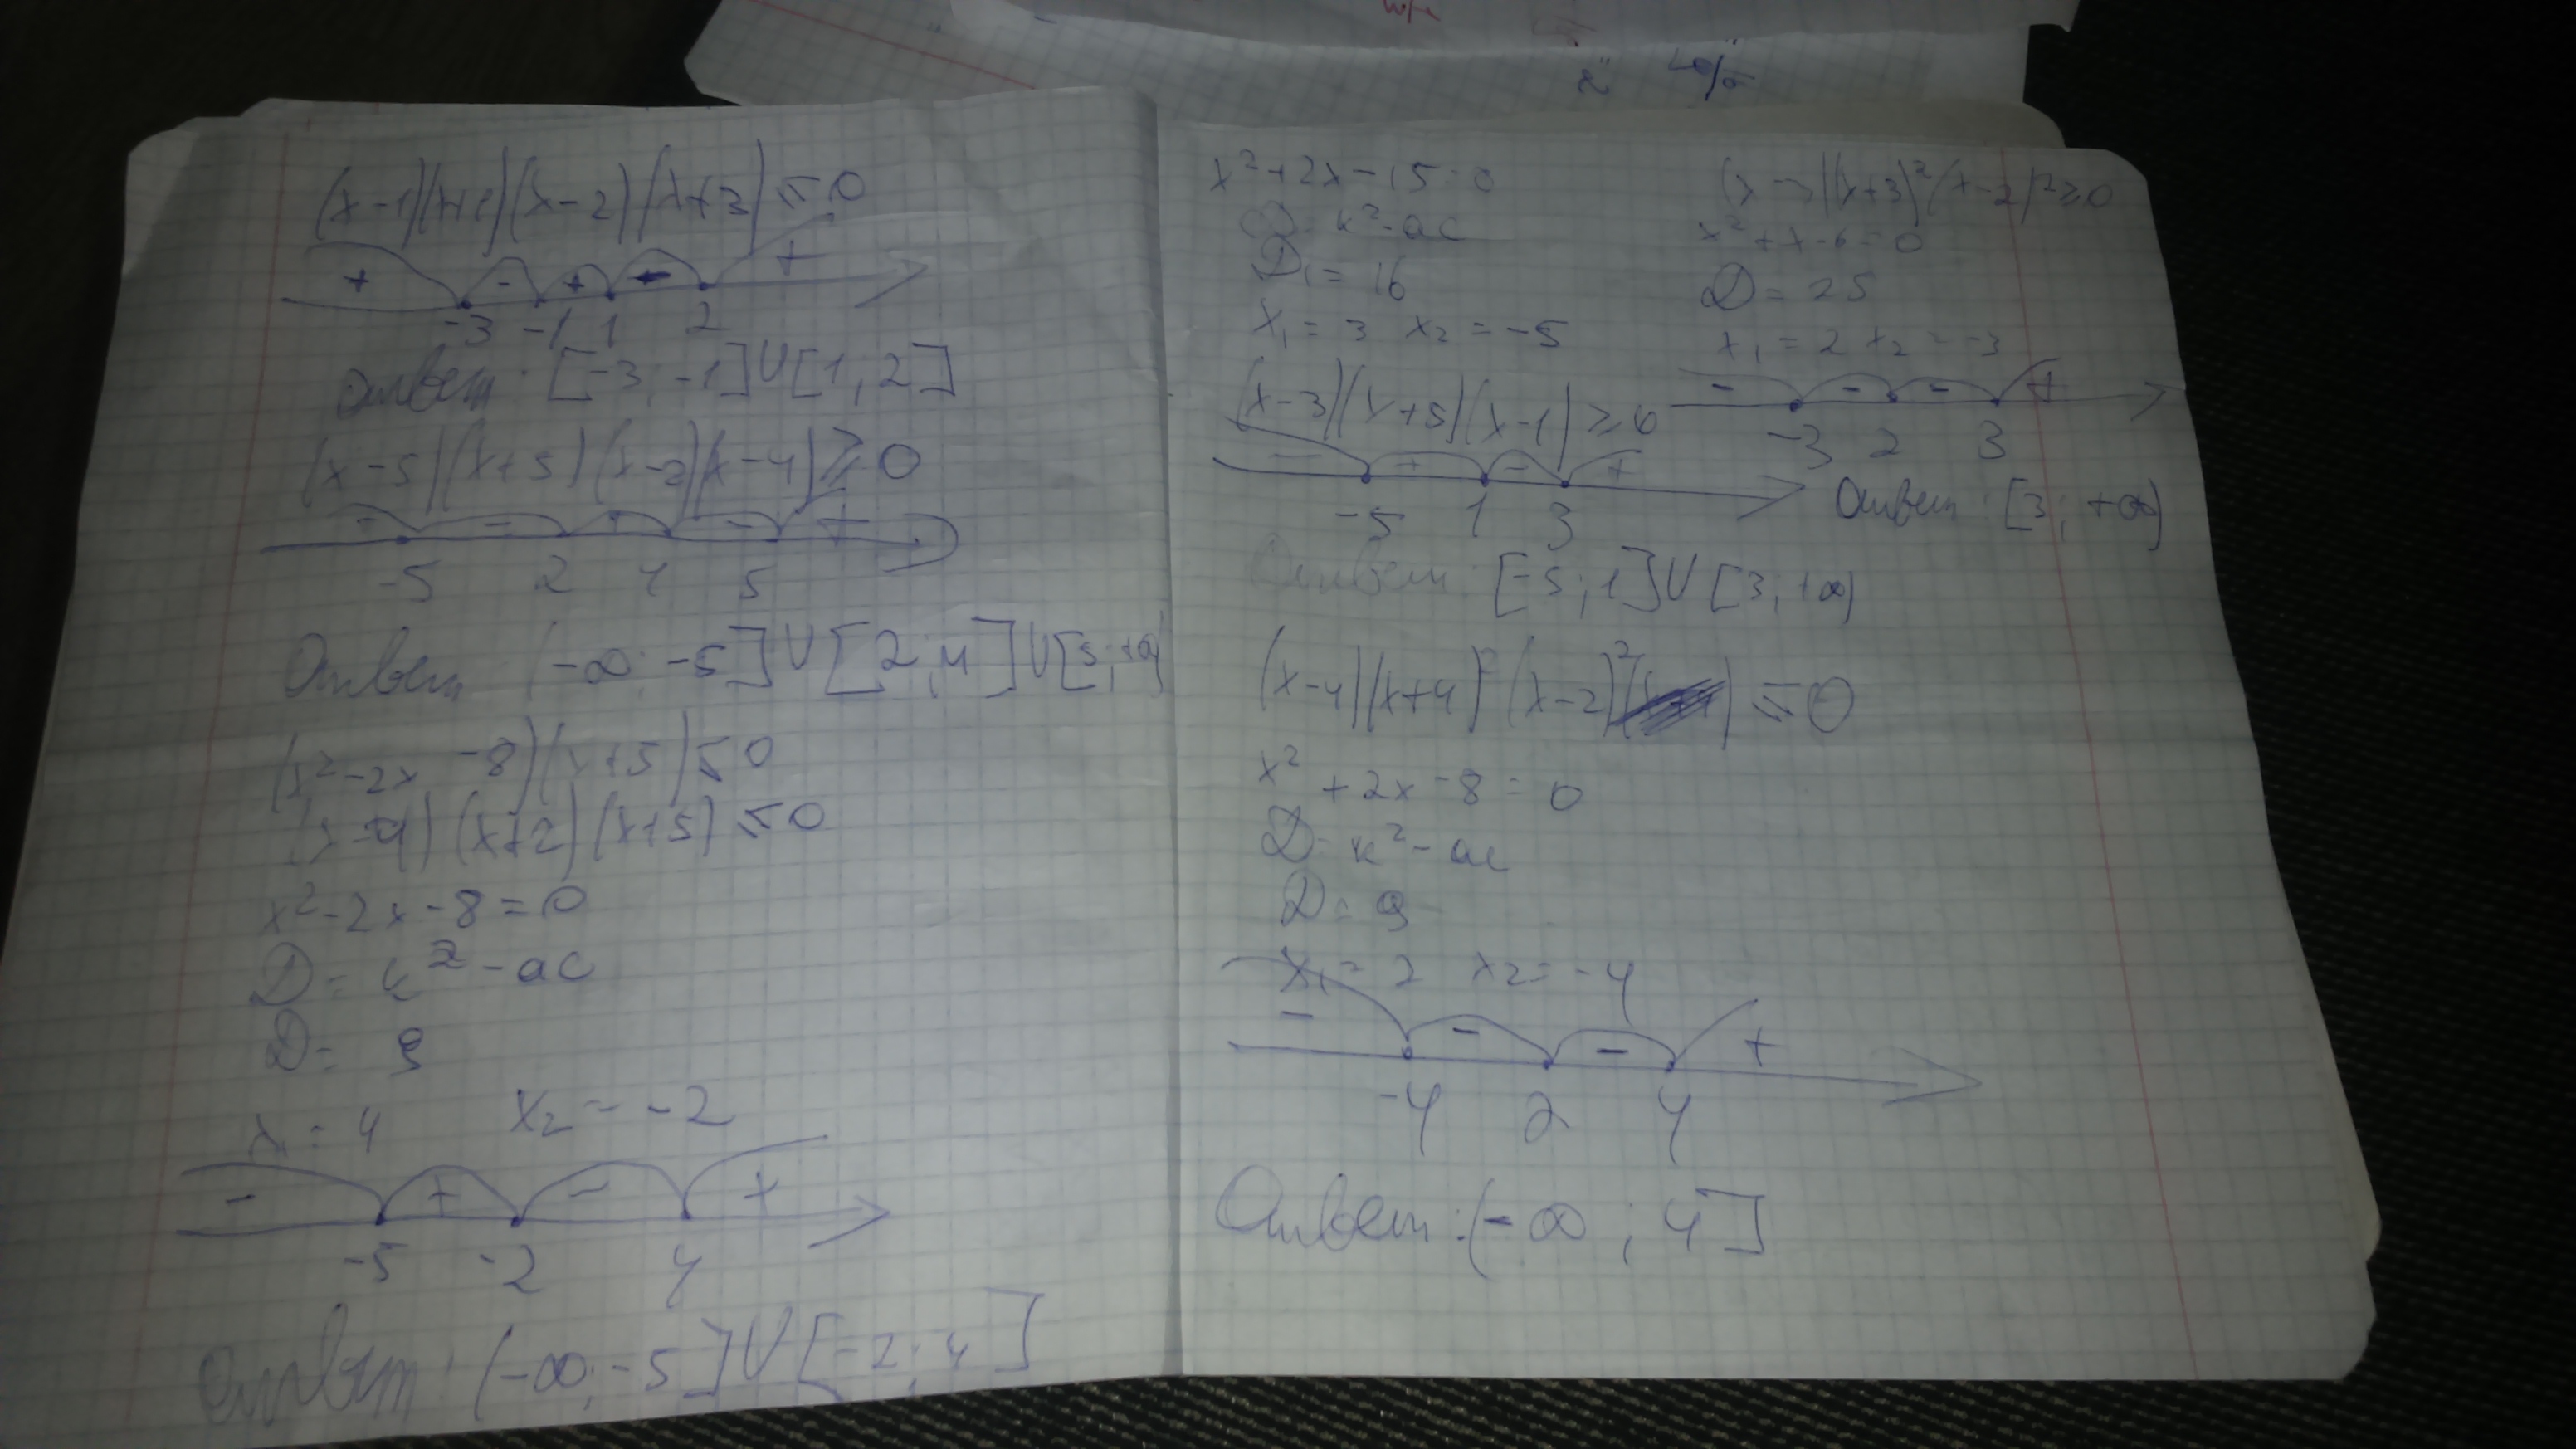 (x-1)(x+1)(x-2)(x+3) ≤ 0
+ - + - +
-3 -1 1 2
Ответ: [-3; -1] U [1; 2]
(x-5)(x+5)(x-2)(x-4) ≥ 0
+ - + - +
-5 2 4 5
Ответ (-∞; -5] U [2; 4] U [5; +∞)
(x²-2x-8)(x+5) ≤ 0
(x-4)(x+2)(x+5) ≤ 0
x²-2x-8=0
D = k²-ac
D = 9
x₁ = 4 x₂ = -2
- + - +
-5 -2 4
Ответ: (-∞; -5] U [-2; 4]
x²+2x-15=0
D = k²-ac
D₁ = 16
x₁ = 3 x₂ = -5
(x-3)(x+5)(x-1) ≥ 0
- + - +
-5 1 3
Ответ: [-5; 1] U [3; +∞)
(x+3)²(x-2)² ≥ 0
x²+x-6=0
D = 25
x₁ = 2 x₂ = -3
- - - +
-3 2 3
Ответ: [3; +∞)
(x-4)(x+4)²(x-2)² ≤ 0
x²+2x-8=0
D = k²-ac
D = 9
x₁ = 2 x₂ = -4
- - - +
-4 2 4
Ответ: (-∞; 4]